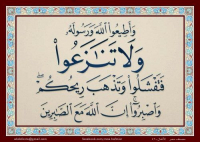 وَأَطِيعُوا۟ ٱللَّهَ وَرَسُولَهُۥ
وَلَا تَنَٰزَعُوا۟
فَتَفْشَلُوا۟ وَتَذْهَبَ رِيحُكُمْ ۖ
وَٱصْبِرُوٓا۟ ۚ إِنَّ ٱللَّهَ مَعَ ٱلصَّٰبِرِينَ